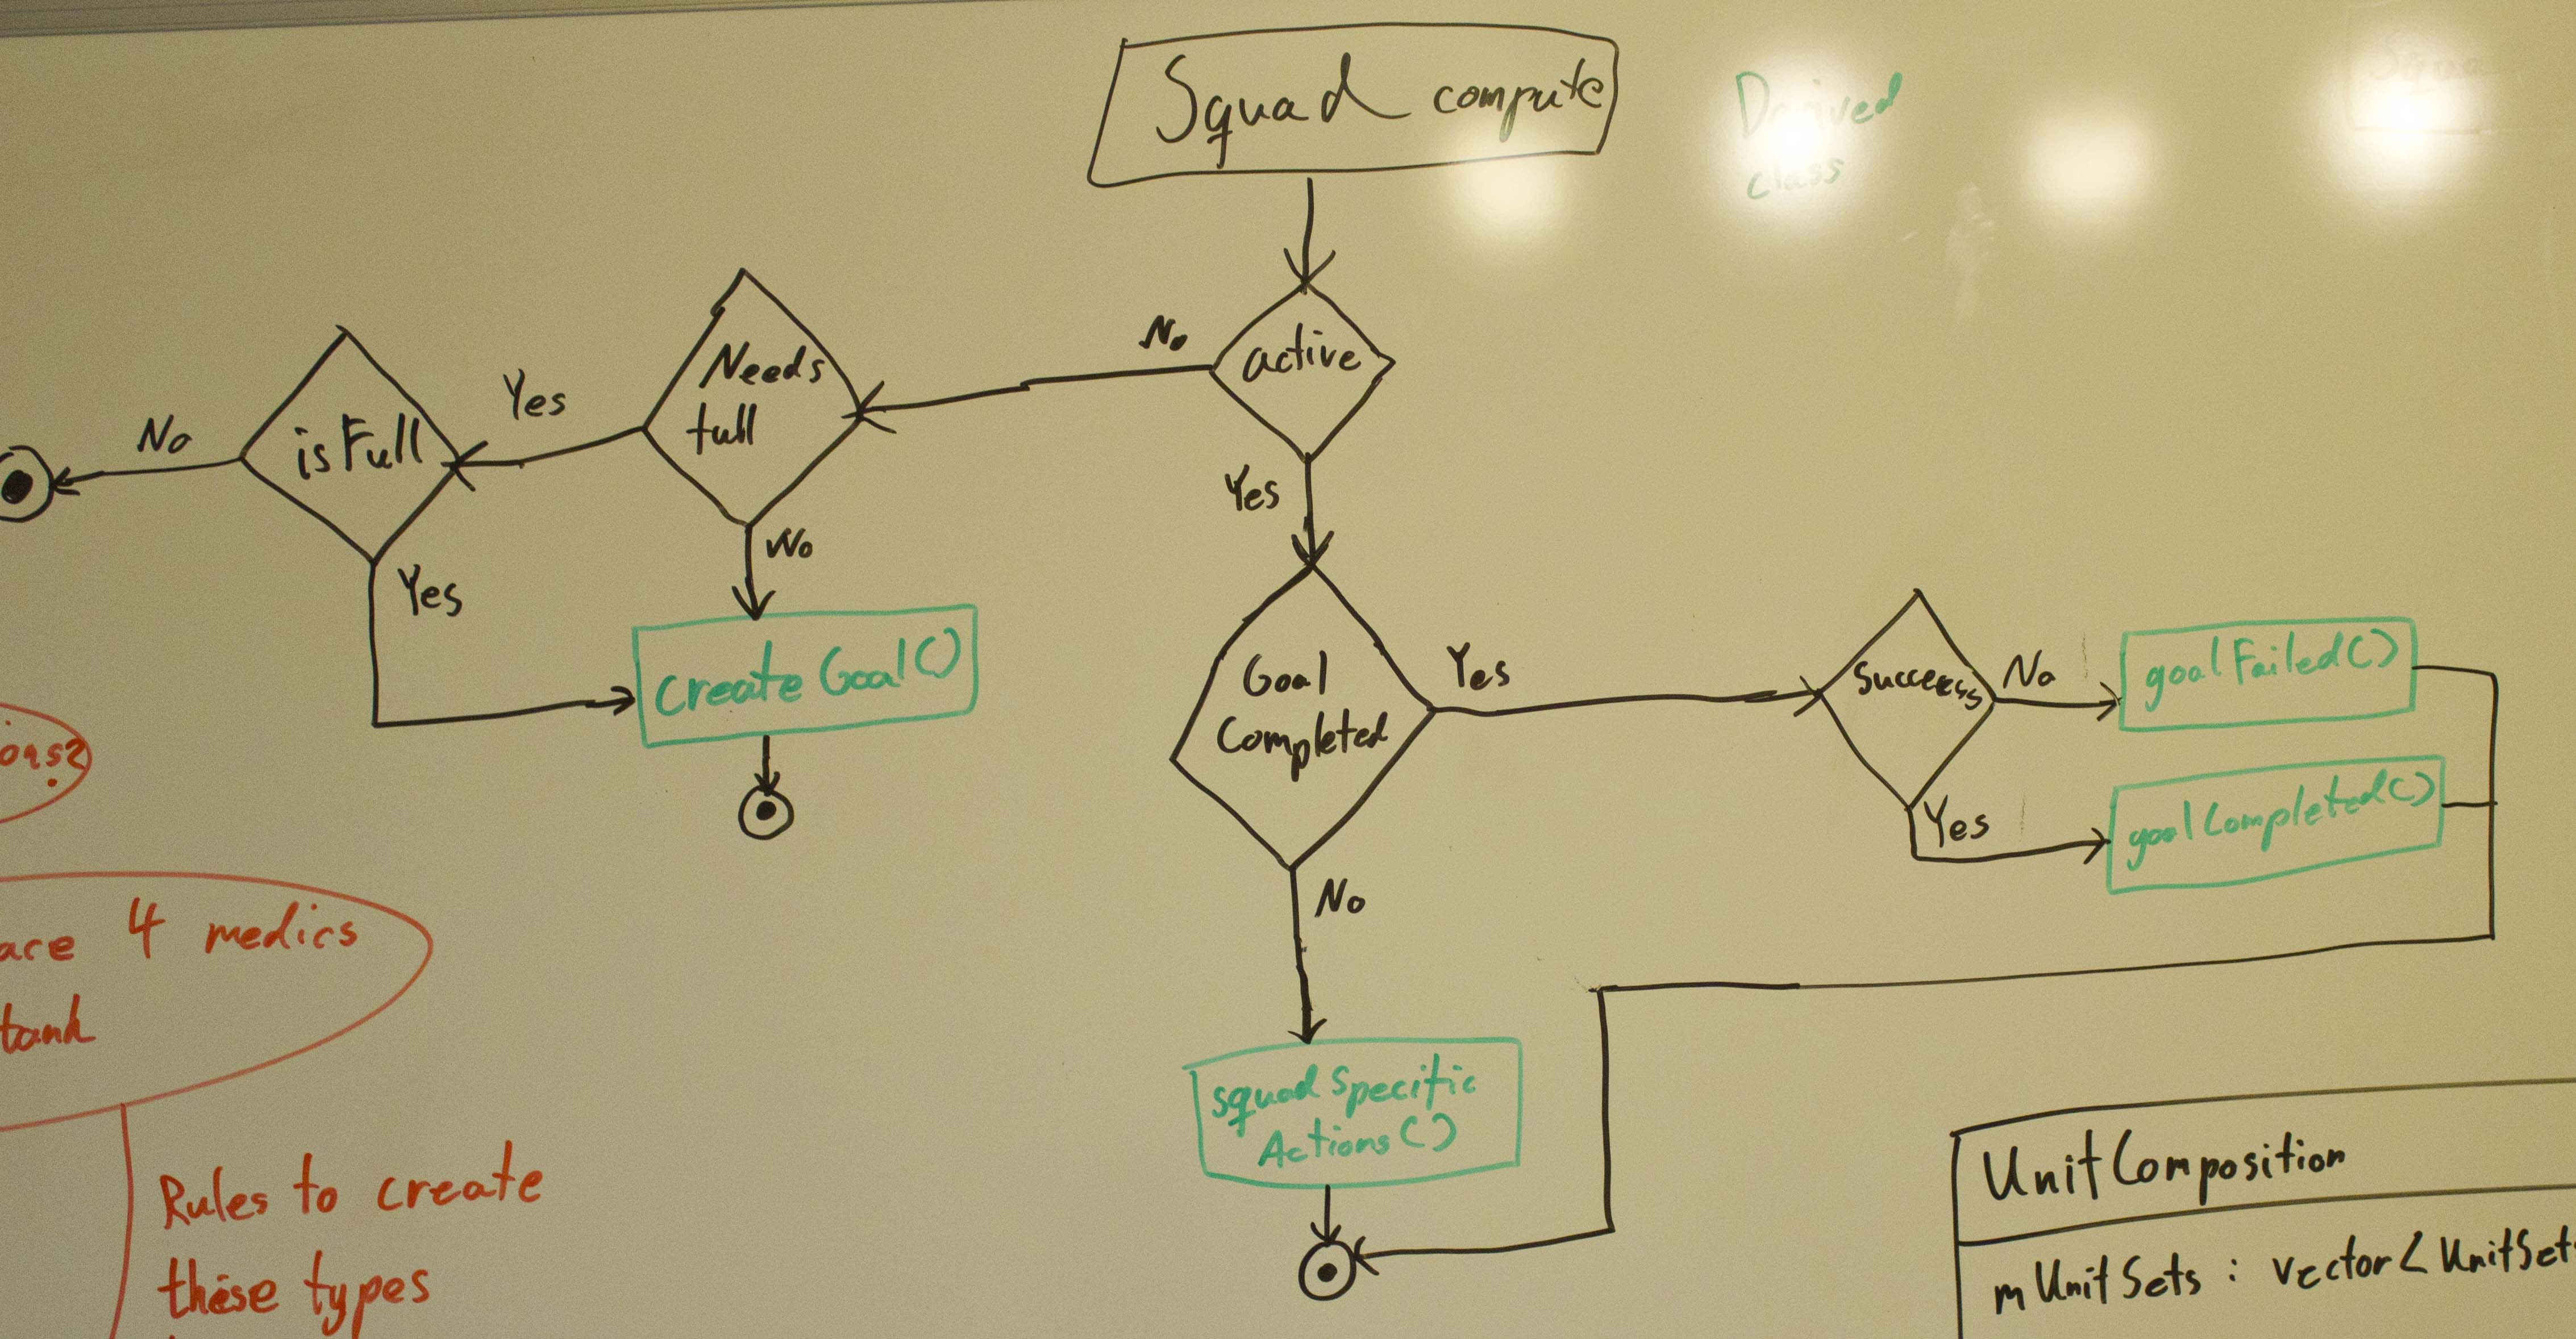 Squad compute
Derived
class
active
No
Yes
Needs
full
Yes
No
isFull
No
Yes
create Goal()
Goal
Completed
Yes
No
Success
No
Yes
goalFailed()
goalCompleted()
squad specific
Actions()
4 medics
tank
Rules to create
these types
UnitComposition
mUnitSets : vector<UnitSet